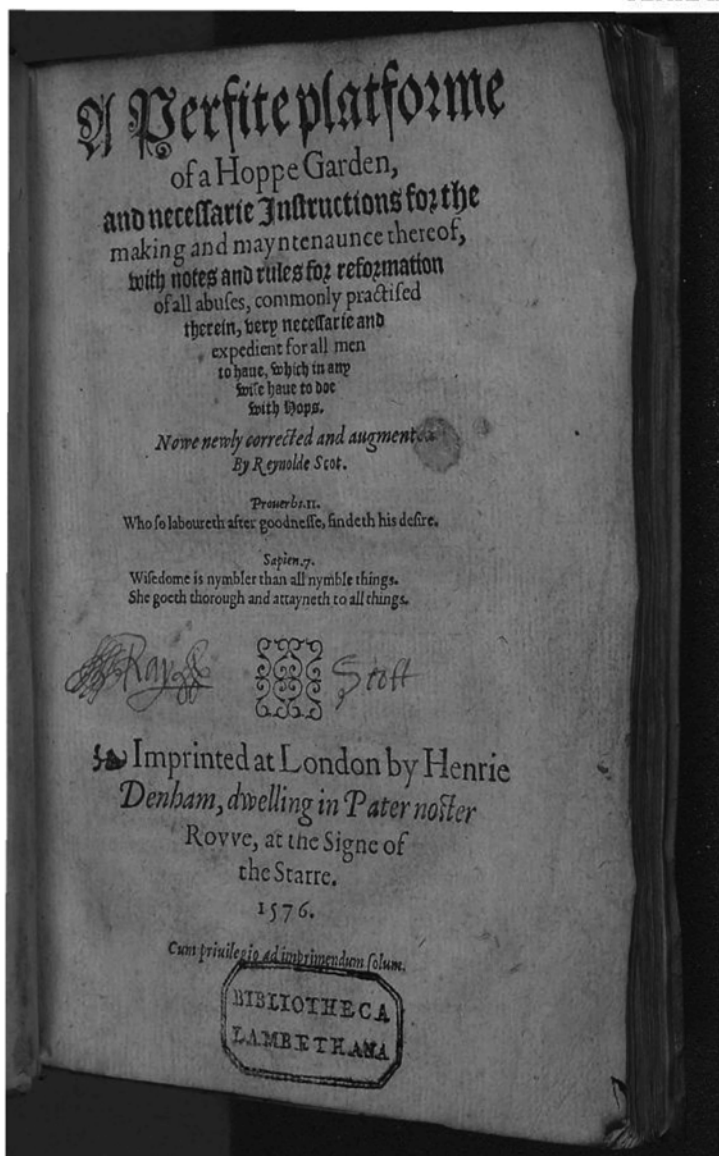 A Perfite platforme
of a Hoppe Garden,
and necessarie Instructions for the
making and mayntenaunce thereof,
with notes and rules for reformation
of all abuses, commonly practised
therein, very necessarie and
expedient for all men
to haue, which in any
wise haue to doe
with Hops.
Nowe newly corrected and augmented
By Reynolde Scot.
Prouerbs.11.
Who so laboureth after goodnesse, findeth his desire.
Sapien.7.
Wisedome is nymbler than all nymble things.
She goeth thorough and attayneth to all things.
Ray Scott
Imprinted at London by Henrie
Denham, dwelling in Pater noster
Rovve, at the Signe of
the Starre.
1576.
Cum priuilegio ad imprimendum solum.
BIBLIOTHECA
LAMBETHANA